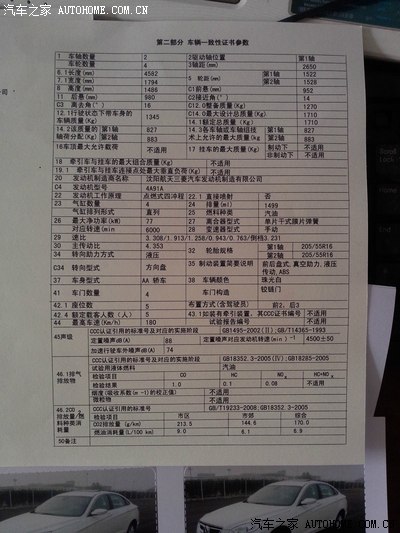 汽车之家 AUTOHOME.COM.CN
第二部分 车辆一致性证书参数
1 车轴数量 2 2驱动轴位置 第1轴
车轮数量 4 3轴距(mm) 2650
6.1长度(mm) 4582 5 轮距(mm) 第1轴 1522
7.1宽度(mm) 1794 第2轴 1528
8 高度(mm) 1486 C1前悬(mm) 952
11 后悬(mm) 980 C2接近角(°) 14
C3 离去角(°) 16 C12.0整备质量(Kg) 1210
12.1行驶状态下带车身的车辆质量(Kg) 1345 C14.0最大设计总质量(Kg) 1710
14.1额定总质量(Kg) 1710
14.2该质量的轴荷分配(Kg) 第1轴 827 14.3各车轴或车轴组技术上允许的最大质量(Kg) 第1轴 827
第2轴 883 第2轴 883
16最大允许载荷 不适用 17 挂车的最大质量(Kg) 制动下 不适用
非制动下 不适用
18 牵引车与挂车的最大组合质量(Kg) 不适用
19.1 牵引车与挂车连接点处最大垂直负荷(Kg) 不适用
20 发动机制造商名称 沈阳航天三菱汽车发动机制造有限公司
C4 发动机型号 4A91A
22 发动机工作原理 点燃式四冲程 22.1 直接喷射 否
23 气缸数量 4 24 排量(ml) 1499
气缸排列形式 直列 25 燃料种类 汽油
26 最大净功率(kW) 77 27 离合器型式 单片干式膜片弹簧
对应转速(min) 6000 28 变速器型式 手动
29 速比 3.308/1.913/1.258/0.943/0.763/倒档3.231
30 主传动比 4.353 32 轮胎规格 第1轴 205/55R16
34 转向助力方式 液压 第2轴 205/55R16
C34 转向型式 方向盘 35 制动装置简要说明 前后盘式,真空助力,液压传动,ABS
37 车身型式 AA 轿车 38 车辆颜色 珠光白
41 车门数量 4 车门构造 铰链门
42.1 座位数 5 布置方式(含驾驶员) 前2,后3
42.4 额定载客人数(人) 5 43.1如装有牵引装置,其CCC证书编号 不适用
44 最高车速(Km/h) 180 试验报告编号 不适用
45声级 CCC认证引用的标准号及对应的实施阶段 GB1495-2002(Ⅱ);GB/T14365-1993
定置噪声dB(A) 88 定置噪声对应的发动机转速(min⁻¹) 4500±50
加速行驶车外噪声dB(A) 74
46.1排气排放物 CCC认证引用的标准号及对应的实施阶段 GB18352.3-2005(Ⅳ);GB18285-2005
试验用液体燃料 汽油
检验项目 CO HC NOx HC+NOx
检验结果 1.0 0.1 0.08 不适用
烟度(吸收系数(m-1)的校正值) 不适用
微粒物 不适用
46.2CO2排放量/燃料种类消耗量 CCC认证引用的标准号 GB/T19233-2008;GB18352.3-2005
检验项目 市区 市郊 综合
CO2排放量(g/km) 213.5 144.6 170.0
燃油消耗量(L/100 km) 9.0 6.1 6.9
50备注
汽车之家 AUTOHOME.COM.CN